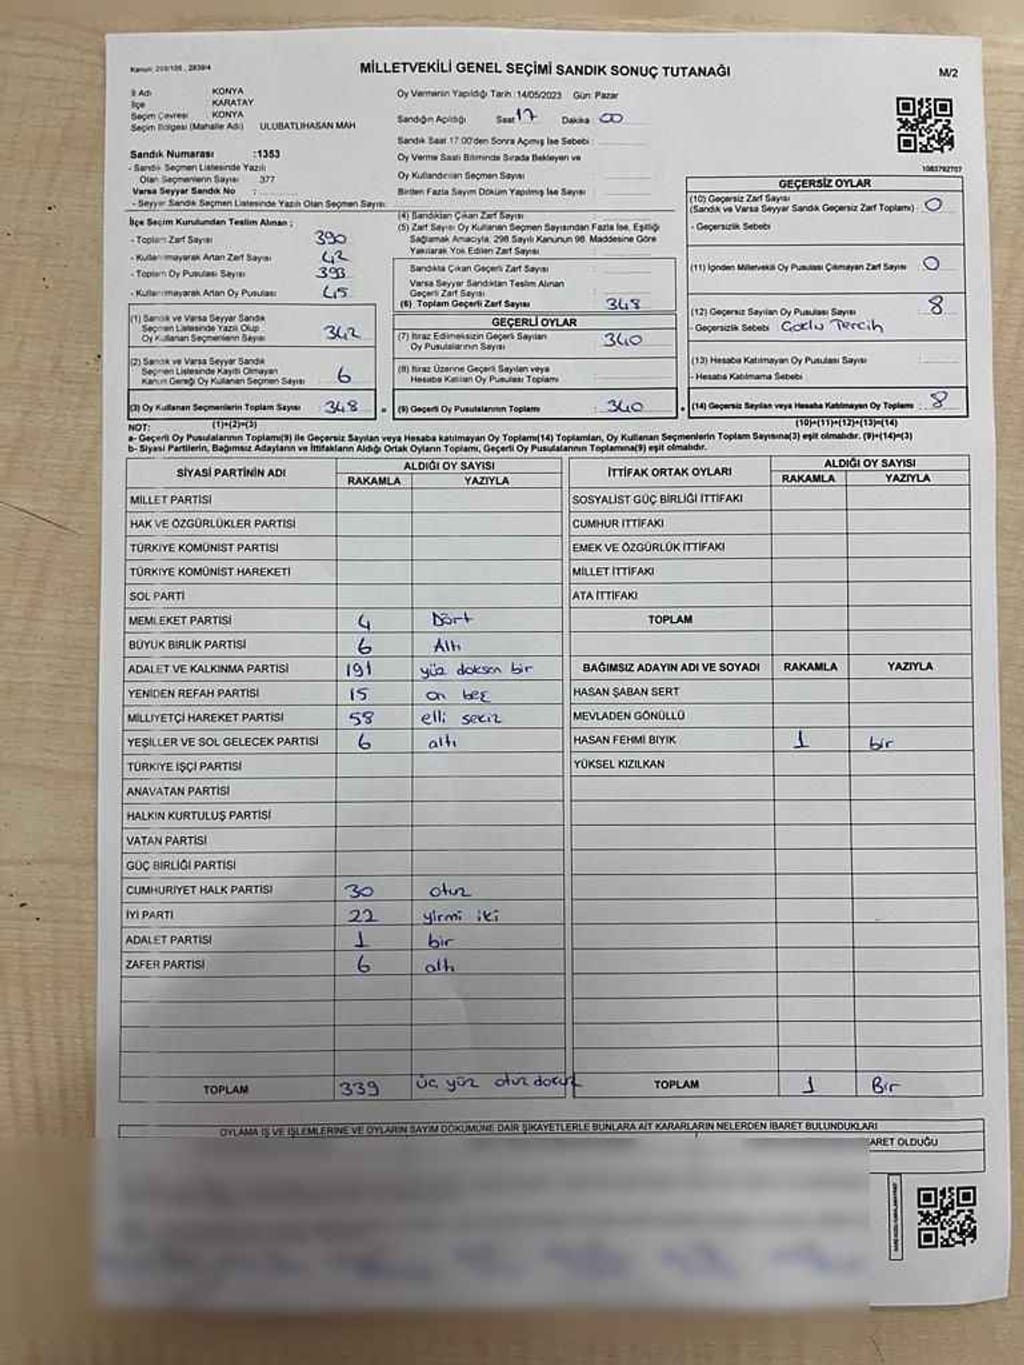 Kanun: 298/105 , 2839/4
MİLLETVEKİLİ GENEL SEÇİMİ SANDIK SONUÇ TUTANAĞI
M/2
İl Adı KONYA
İlçe KARATAY
Seçim Çevresi KONYA
Seçim Bölgesi (Mahalle Adı) ULUBATLIHASAN MAH
Sandık Numarası :1353
- Sandık Seçmen Listesinde Yazılı
Olan Seçmenlerin Sayısı 377
Varsa Seyyar Sandık No :
- Seyyar Sandık Seçmen Listesinde Yazılı Olan Seçmen Sayısı:
Oy Vermenin Yapıldığı Tarih :14/05/2023 Gün: Pazar
Sandığın Açıldığı Saat 17 Dakika 00
Sandık Saat 17:00'den Sonra Açılmış İse Sebebi :
Oy Verme Saati Bitiminde Sırada Bekleyen ve
Oy Kullandırılan Seçmen Sayısı :
Birden Fazla Sayım Döküm Yapılmış İse Sayısı :
1083792707
İlçe Seçim Kurulundan Teslim Alınan ;
- Toplam Zarf Sayısı 390
- Kullanılmayarak Artan Zarf Sayısı 42
- Toplam Oy Pusulası Sayısı 393
- Kullanılmayarak Artan Oy Pusulası 45
(1) Sandık ve Varsa Seyyar Sandık
Seçmen Listesinde Yazılı Olup
Oy Kullanan Seçmenlerin Sayısı 342
(2) Sandık ve Varsa Seyyar Sandık
Seçmen Listesinde Kayıtlı Olmayan
Kanun Gereği Oy Kullanan Seçmen Sayısı 6
(3) Oy Kullanan Seçmenlerin Toplam Sayısı 348 =
(1)+(2)=(3)
(4) Sandıktan Çıkan Zarf Sayısı :
(5) Zarf Sayısı Oy Kullanan Seçmen Sayısından Fazla İse, Eşitliği
Sağlamak Amacıyla, 298 Sayılı Kanunun 98. Maddesine Göre
Yakılarak Yok Edilen Zarf Sayısı :
Sandıkta Çıkan Geçerli Zarf Sayısı :
Varsa Seyyar Sandıktan Teslim Alınan
Geçerli Zarf Sayısı :
(6) Toplam Geçerli Zarf Sayısı : 348
GEÇERLİ OYLAR
(7) İtiraz Edilmeksizin Geçerli Sayılan
Oy Pusulalarının Sayısı : 340
(8) İtiraz Üzerine Geçerli Sayılan veya
Hesaba Katılan Oy Pusulası Toplamı :
(9) Geçerli Oy Pusulalarının Toplamı : 340 +
GEÇERSİZ OYLAR
(10) Geçersiz Zarf Sayısı
(Sandık ve Varsa Seyyar Sandık Geçersiz Zarf Toplamı) : 0
- Geçersizlik Sebebi
(11) İçinden Milletvekili Oy Pusulası Çıkmayan Zarf Sayısı : 0
(12) Geçersiz Sayılan Oy Pusulası Sayısı : 8
- Geçersizlik Sebebi Çoklu Tercih
(13) Hesaba Katılmayan Oy Pusulası Sayısı :
- Hesaba Katılmama Sebebi
(14) Geçersiz Sayılan veya Hesaba Katılmayan Oy Toplamı : 8
(10)+(11)+(12)+(13)=(14)
NOT:
a- Geçerli Oy Pusulalarının Toplamı(9) ile Geçersiz Sayılan veya Hesaba katılmayan Oy Toplamı(14) Toplamları, Oy Kullanan Seçmenlerin Toplam Sayısına(3) eşit olmalıdır. (9)+(14)=(3)
b- Siyasi Partilerin, Bağımsız Adayların ve İttifakların Aldığı Ortak Oyların Toplamı, Geçerli Oy Pusulalarının Toplamına(9) eşit olmalıdır.
SİYASİ PARTİNİN ADI ALDIĞI OY SAYISI
RAKAMLA YAZIYLA
MİLLET PARTİSİ
HAK VE ÖZGÜRLÜKLER PARTİSİ
TÜRKİYE KOMÜNİST PARTİSİ
TÜRKİYE KOMÜNİST HAREKETİ
SOL PARTİ
MEMLEKET PARTİSİ 4 Dört
BÜYÜK BİRLİK PARTİSİ 6 Altı
ADALET VE KALKINMA PARTİSİ 191 yüz doksan bir
YENİDEN REFAH PARTİSİ 15 on beş
MİLLİYETÇİ HAREKET PARTİSİ 58 elli sekiz
YEŞİLLER VE SOL GELECEK PARTİSİ 6 altı
TÜRKİYE İŞÇİ PARTİSİ
ANAVATAN PARTİSİ
HALKIN KURTULUŞ PARTİSİ
VATAN PARTİSİ
GÜÇ BİRLİĞİ PARTİSİ
CUMHURİYET HALK PARTİSİ 30 otuz
İYİ PARTİ 22 yirmi iki
ADALET PARTİSİ 1 bir
ZAFER PARTİSİ 6 altı
TOPLAM 339 üç yüz otuz dokuz
İTTİFAK ORTAK OYLARI ALDIĞI OY SAYISI
RAKAMLA YAZIYLA
SOSYALİST GÜÇ BİRLİĞİ İTTİFAKI
CUMHUR İTTİFAKI
EMEK VE ÖZGÜRLÜK İTTİFAKI
MİLLET İTTİFAKI
ATA İTTİFAKI
TOPLAM
BAĞIMSIZ ADAYIN ADI VE SOYADI RAKAMLA YAZIYLA
HASAN ŞABAN SERT
MEVLADEN GÖNÜLLÜ
HASAN FEHMİ BIYIK 1 bir
YÜKSEL KIZILKAN
TOPLAM 1 Bir
OYLAMA İŞ VE İŞLEMLERİNE VE OYLARIN SAYIM DÖKÜMÜNE DAİR ŞİKAYETLERLE BUNLARA AİT KARARLARIN NELERDEN İBARET BULUNDUKLARI
ARET OLDUĞU